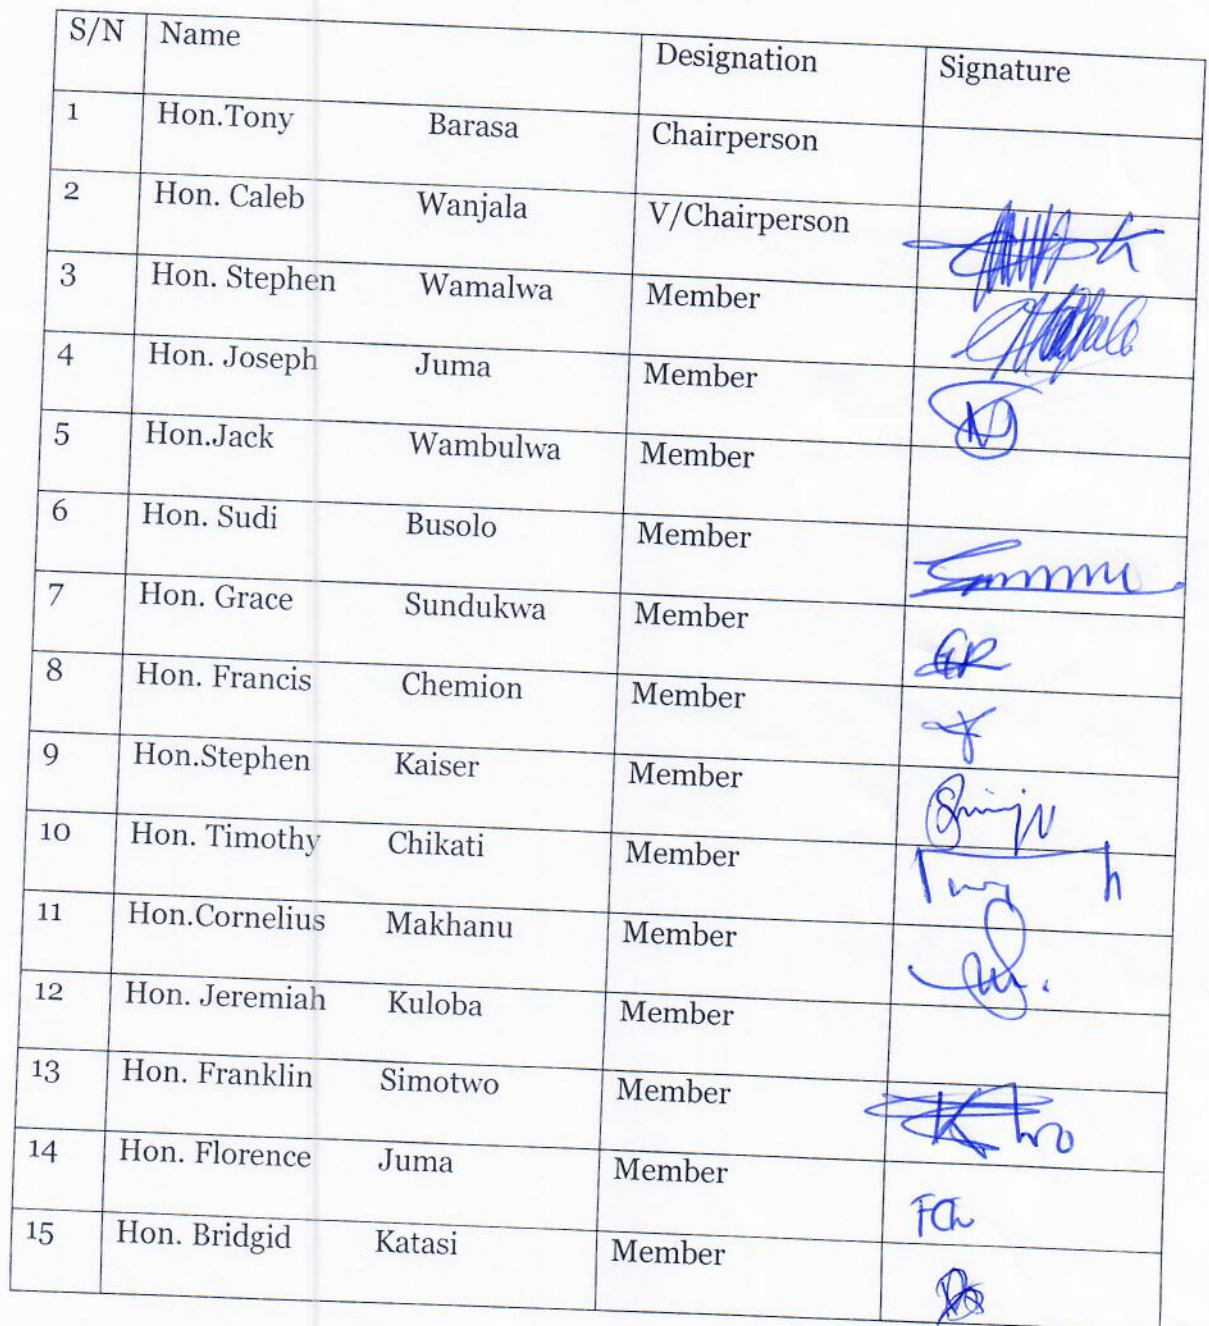 S/N Name Designation Signature
1 Hon.Tony Barasa Chairperson
2 Hon. Caleb Wanjala V/Chairperson
3 Hon. Stephen Wamalwa Member
4 Hon. Joseph Juma Member
5 Hon.Jack Wambulwa Member
6 Hon. Sudi Busolo Member
7 Hon. Grace Sundukwa Member
8 Hon. Francis Chemion Member
9 Hon.Stephen Kaiser Member
10 Hon. Timothy Chikati Member
11 Hon.Cornelius Makhanu Member
12 Hon. Jeremiah Kuloba Member
13 Hon. Franklin Simotwo Member
14 Hon. Florence Juma Member
15 Hon. Bridgid Katasi Member